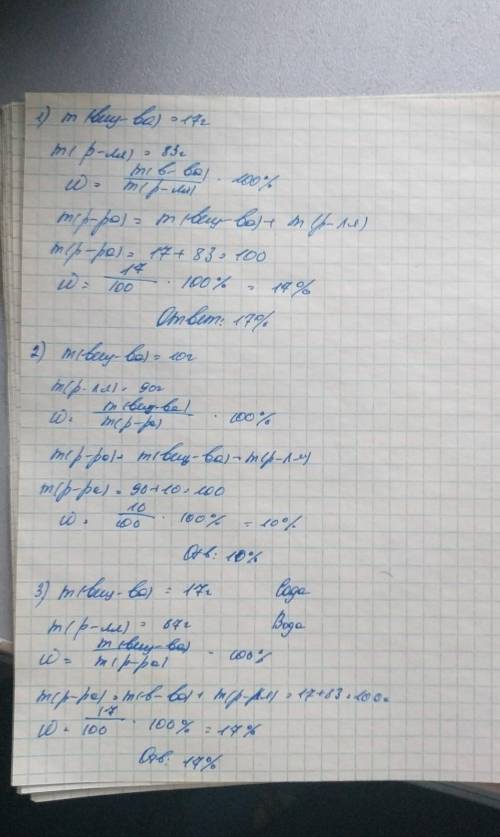 1) m(вещ-ва) = 17г
m(р-ля) = 83г
ω = m(в-ва) / m(р-ля) · 100%
m(р-ра) = m(вещ-ва) + m(р-ля)
m(р-ра) = 17 + 83 = 100
ω = 17 / 100 · 100% = 17%
Ответ: 17%
2) m(вещ-ва) = 10г
m(р-ля) = 90г
ω = m(вещ-ва) / m(р-ра) · 100%
m(р-ра) = m(вещ-ва) + m(р-ля)
m(р-ра) = 90 + 10 = 100
ω = 10 / 100 · 100% = 10%
Отв: 10%
3) m(вещ-ва) = 17г Сода
m(р-ля) = Вода
ω = m(вещ-ва) / m(р-ра) · 100%
m(р-ра) = m(в-ва) + m(р-ля) = 17 + 83 = 100г
ω = 17 / 100 · 100% = 17%
Отв: 17%